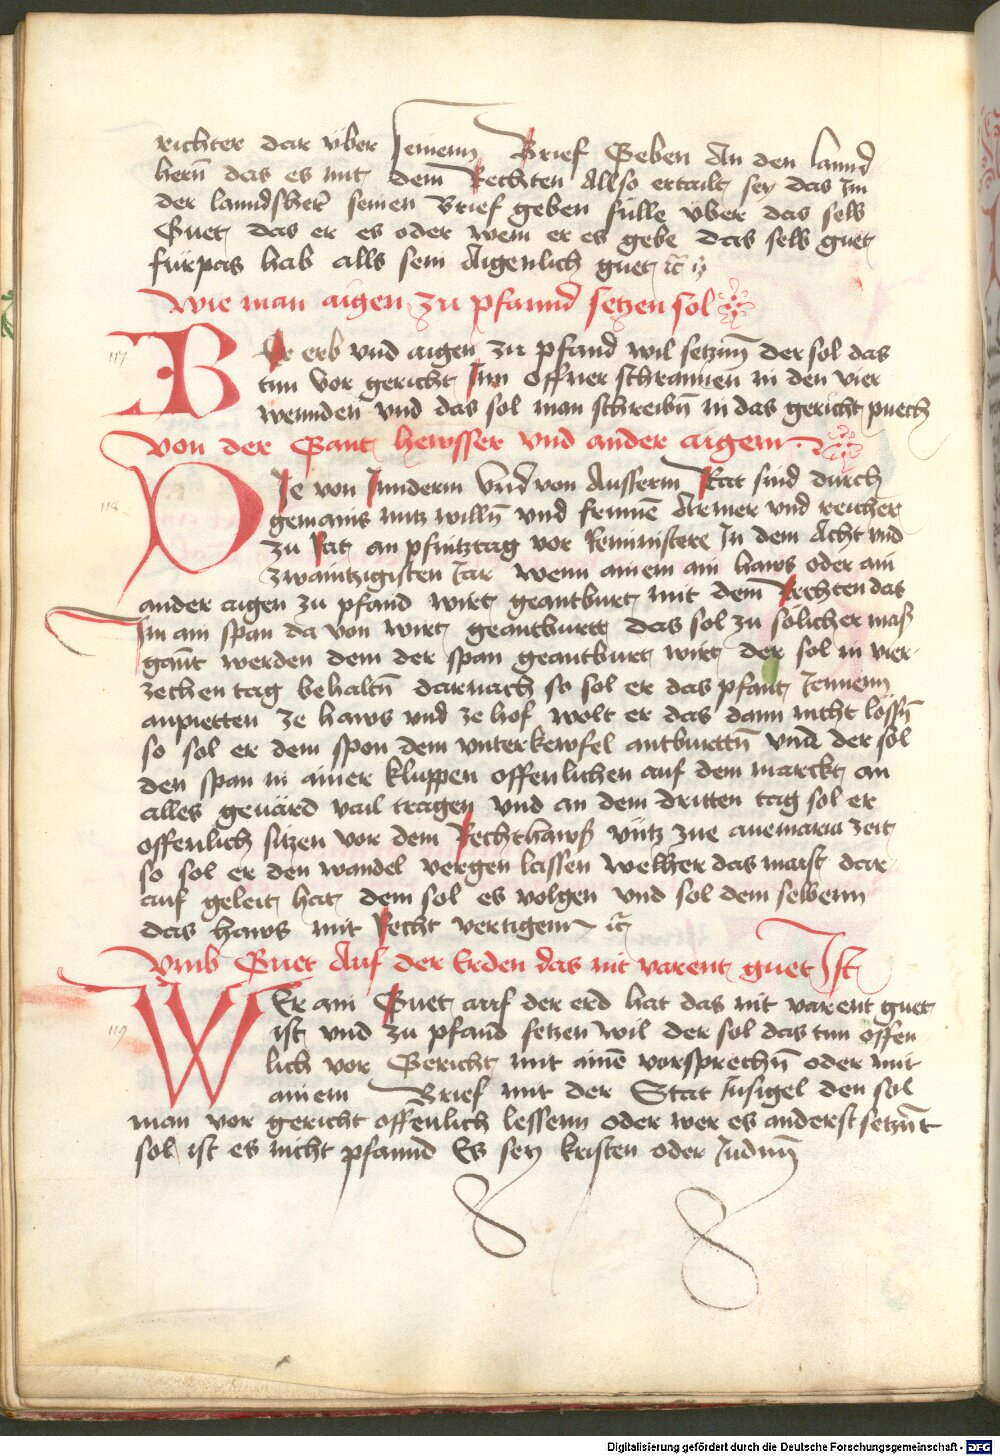 richter dar über Jemenn Brief Geben An den lannd
herñ das es mit dem Rechten Allso ertailt sey das Im
der lanndsher̃ seinen Brief geben sülle über das selb
Guet das er es oder wem er es gebe das selb guet
fürpas hab alls sein Aigenlich guet ic̃
Wie man aigen zu pfannd setzen sol
117
Er erb vnd aigen zu pfand wil setznn̄ der sol das
tun vor gericht Inn offner schrannen̄ in den vier
wennden vnd das sol man schreibñ in das gericht puech
Von der Gant hewsser vnd ander aigem
118
DIe von Innderm vnd von Ausserm Rat sind durch
gemains nutz willñ vnd frumē Armer vnd reicher
zu Rat an pfintztag vor Reministere In dem Acht vnd
zwaintzigisten Jar wenn ainem ain haws oder ain
ander aigen zu pfand wirt geantburt mit dem Rechten das
Im ain span da von wirt geantburtt das sol zu sölicher maß
gant werden dem der span geantburt wirt der sol in vier
zechen tag behaltñ darnach so sol er das pfant Jennenn
anpietten ze haws vnd ze hof wolt er das dann nicht lössñ
so sol er dem spon dem vnterkewfel antburttñ vnd der sol
den span in ainer kluppen offenlichen auf dem marckt an
alles geuärd vail tragen vnd an dem dritten tag sol er
offenlich sitzen vor dem Rechthawß vntz zue auemaria zeit
so sol er den wandel vergen lassen welher das maist dar
auf geleit hat dem sol es volgen vnd sol dem selbenn
das haws mit Recht vertigenn ic̃
Vmb Guet Auf der Erden das nit varent guet Ist
119
WEr ain Guet auf der erd hat das nit varent guet
ist vnd zu pfand setzen wil der sol das tun offen
lich vor Gericht mit ainē vorsprechñ oder mit
ainem Brief mit der Stat Insigel den sol
man vor gericht offenlich lessenn oder wer es anderst setzñt
sol ist es nicht pfannd Es sey kristen oder Judnn̄
Digitalisierung gefördert durch die Deutsche Forschungsgemeinschaft - DFG